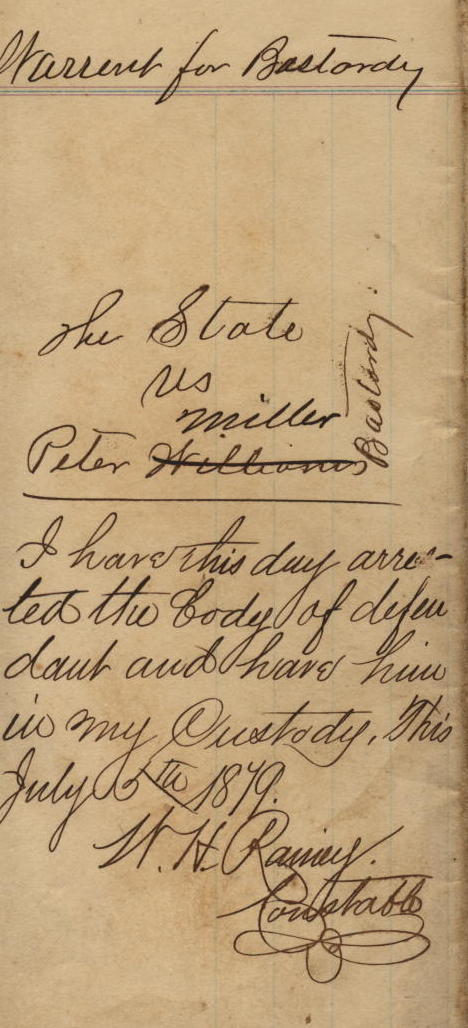 Warrent for Bastardy
The State
vs
Miller
Peter Williams
Bastardy
I have this day arres-
ted the body of defen
dant and have him
in my Custody. This
July 5th 1879.
W. H. Rainey.
Constable